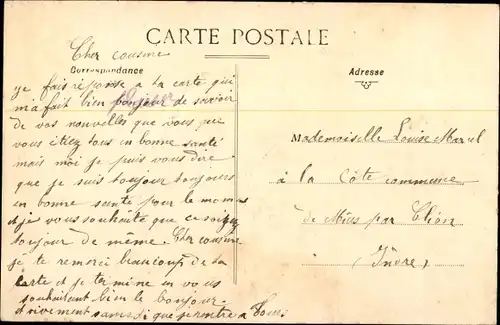 CARTE POSTALE
Cher cousine
Correspondance
je fais réponse a ta carte qui
m'a fait bien bonjour de savoir
de vos nouvelles que vous
vous étiez tous en bonne santé
mais moi je puis vous dire
que je suis toujour toujours
en bonne santé pour le moment
et je vous souhaite que ce
toujour de même. Cher cousine
je te remerci beaucoup de ta
carte et je termine en vous
souhaitant bien le bonjour.
vivement samedi que je rentre a
Adresse
Mademoiselle Louise Marcel
à la Côte commune
de Méus par Clion
(Indre)